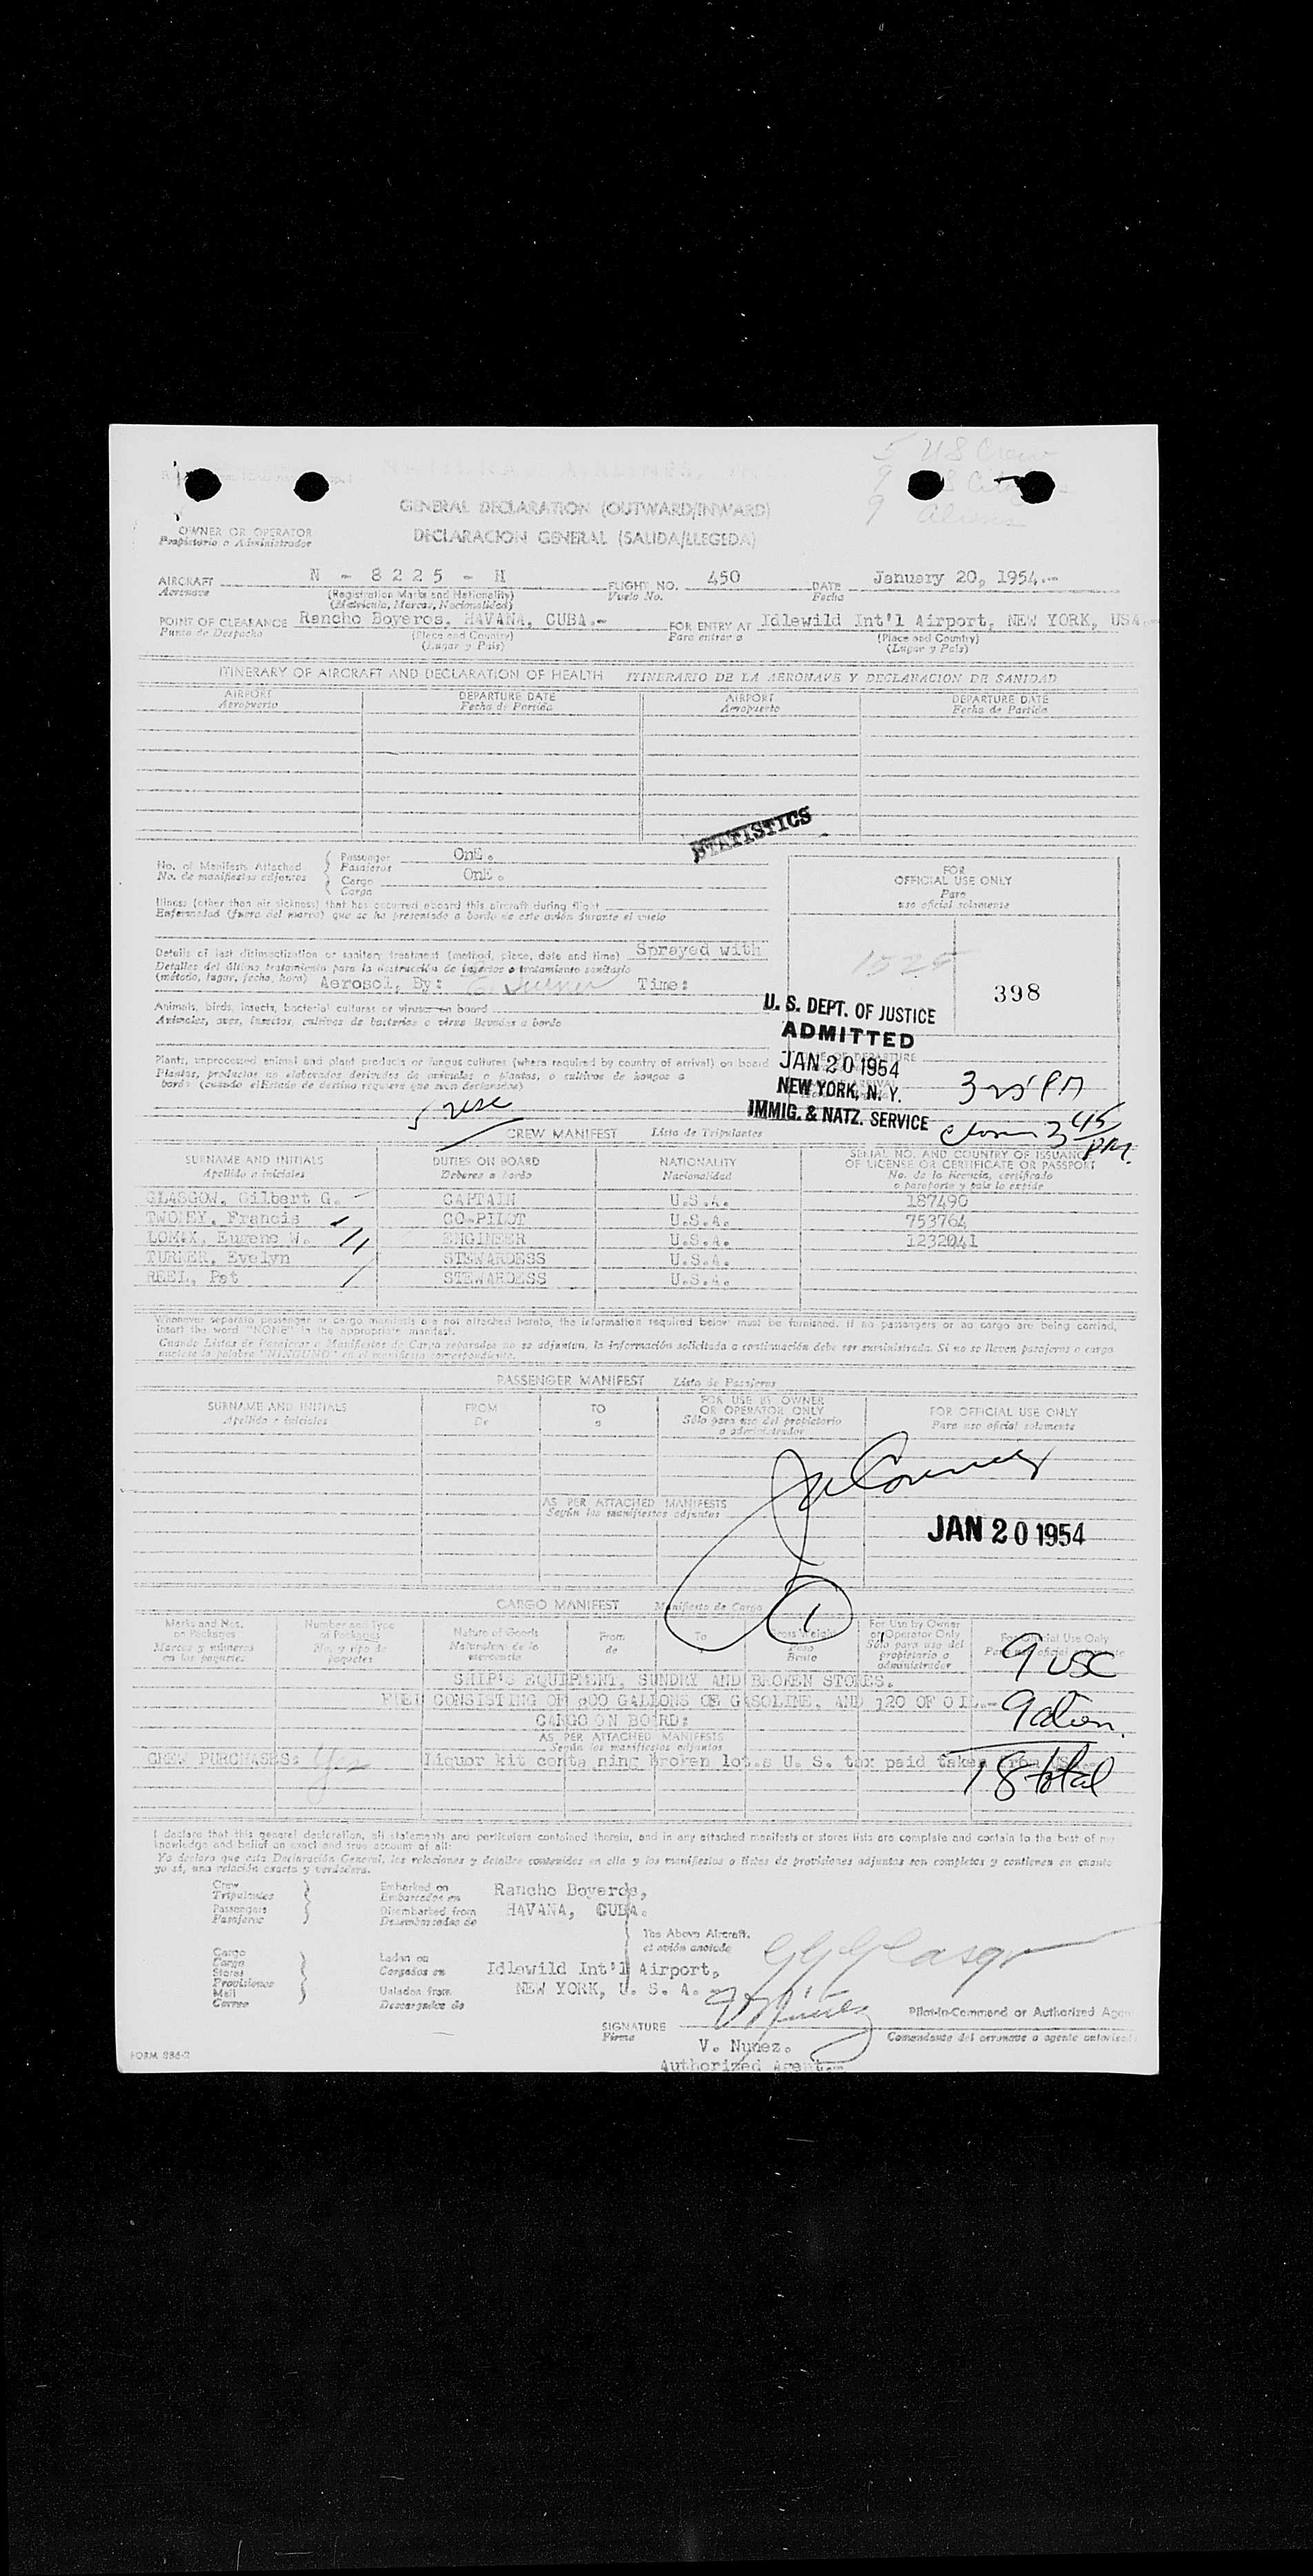 5 US Crew
9 US Cit
9 Aliens
NATIONAL AIRLINES, INC.
GENERAL DECLARATION (OUTWARD/INWARD)
OWNER OR OPERATOR
Propietario o Administrador
DECLARACION GENERAL (SALIDA/LLEGEDA)
AIRCRAFT N - 8225 - H FLIGHT NO. 450 DATE January 20, 1954.-
Aeronave (Registration Marks and Nationality) Vuelo No. Fecha
(Matrícula, Marcas, Nacionalidad)
POINT OF CLEARANCE Rancho Boyeros, HAVANA, CUBA.- FOR ENTRY AT Idlewild Int'l Airport, NEW YORK, USA.
Punto de Despacho (Place and Country) Para entrar a (Place and Country)
(Lugar y País) (Lugar y País)
ITINERARY OF AIRCRAFT AND DECLARATION OF HEALTH ITINERARIO DE LA AERONAVE Y DECLARACION DE SANIDAD
AIRPORT DEPARTURE DATE AIRPORT DEPARTURE DATE
Aeropuerto Fecha de Partida Aeropuerto Fecha de Partida
STATISTICS
No. of Manifests Attached Passenger OnE.
No. de manifiestos adjuntos Pasajeros
Cargo OnE.
Carga
FOR
OFFICIAL USE ONLY
Para
uso oficial solamente
Illness (other than air sickness) that has occurred aboard this aircraft during flight
Enfermedad (fuera del mareo) que se ha presentado a bordo de este avión durante el vuelo
Details of last disinsectization or sanitary treatment (method, place, date and time) Sprayed with
Detalles del último tratamiento para la destrucción de insectos o tratamiento sanitario
(método, lugar, fecha, hora) Aerosol, By: E. Turner Time:
1525
398
Animals, birds, insects, bacterial cultures or viruses on board
Animales, aves, insectos, cultivos de bacterias o virus llevados a bordo
U. S. DEPT. OF JUSTICE
ADMITTED
JAN 20 1954
NEW YORK, N. Y.
IMMIG. & NATZ. SERVICE
Plants, unprocessed animal and plant products or fungus cultures (where required by country of arrival) on board
Plantas, productos no elaborados derivados de animales o plantas, o cultivos de hongos a
bordo (cuando el Estado de destino requiere que sean declarados)
325 PM
5 usc
345 PM.
CREW MANIFEST Lista de Tripulantes
SURNAME AND INITIALS DUTIES ON BOARD NATIONALITY SERIAL NO. AND COUNTRY OF ISSUANCE
OF LICENSE OR CERTIFICATE OR PASSPORT
Apellido e iniciales Deberes a bordo Nacionalidad No. de la licencia, certificado
o pasaporte y país lo expide
GLASGOW, Gilbert G. CAPTAIN U.S.A. 187490
TWOMEY, Francis CO-PILOT U.S.A. 753764
LOMAX, Eugene W. ENGINEER U.S.A. 1232041
TURNER, Evelyn STEWARDESS U.S.A.
REEL, Pat STEWARDESS U.S.A.
Whenever separate passenger or cargo manifests are not attached hereto, the information required below must be furnished. If no passengers or no cargo are being carried,
insert the word "NONE" in the appropriate manifest.
Cuando Listas de Pasajeros o Manifiestos de Carga separados no se adjuntan, la información solicitada a continuación debe ser suministrada. Si no se lleven pasajeros o carga
anótese la palabra "NINGUNO" en el manifiesto correspondiente.
PASSENGER MANIFEST Lista de Pasajeros
SURNAME AND INITIALS FROM TO FOR USE BY OWNER
OR OPERATOR ONLY FOR OFFICIAL USE ONLY
Apellido e iniciales De a Sólo para uso del propietario
o administrador Para uso oficial solamente
AS PER ATTACHED MANIFESTS
Según los manifiestos adjuntos
JAN 20 1954
1
CARGO MANIFEST Manifiesto de Carga
Marks and Nos.
on Packages
Marcas y números
en los paquetes
Number and Type
of Packages
No. y tipo de
paquetes
Nature of Goods
Naturaleza de la
mercancía
From
de
To
Gross Weight
Peso
Bruto
For Use by Owner
or Operator Only
Sólo para uso del
propietario o
administrador
For Official Use Only
9 USC
SHIP'S EQUIPMENT, SUNDRY AND BROKEN STORES.
FUEL CONSISTING OF 900 GALLONS OF GASOLINE, AND 120 OF OIL.-
9 alien.
CARGO ON BOARD:
AS PER ATTACHED MANIFESTS
Según los manifiestos adjuntos
CREW PURCHASES: Yes Liquor kit containing broken lot.s U. S. tax paid taken from
18 total
I declare that this general declaration, all statements and particulars contained therein, and in any attached manifests or stores lists are complete and contain to the best of my
knowledge and belief an exact and true account of all.
Yo declaro que esta Declaración General, las relaciones y detalles contenidos en ella y los manifiestos o listas de provisiones adjuntas son completos y contienen en cuanto
yo sé, una relación exacta y verdadera.
Crew
Tripulantes
Passengers
Pasajeros
Embarked on
Embarcados en
Disembarked from
Desembarcados de
Rancho Boyeros,
HAVANA, CUBA.
The Above Aircraft.
el avión anotado
Cargo
Carga
Stores
Provisiones
Mail
Correo
Laden on
Cargados en
Unladen from
Descargados de
Idlewild Int'l Airport,
NEW YORK, U. S. A.
GG Glasgow
Pilot-in-Command or Authorized Agent
SIGNATURE
Firma
V Nunez
Comandante del aeronave o agente autorizado
V. Nunez.
Authorized Agent.-
FORM 886-2